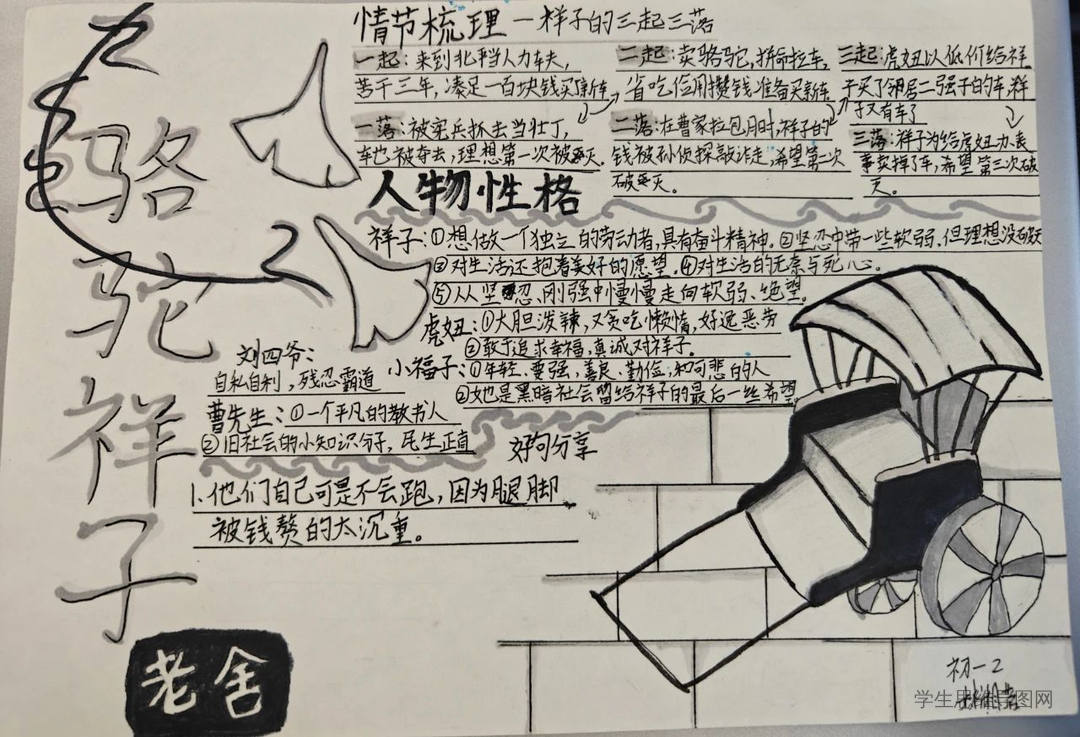 骆驼祥子
老舍
情节梳理 一祥子的三起三落
一起：来到北平当人力车夫，
苦干三年，凑足一百块钱买新车
一落：被宪兵抓去当壮丁，
车也被夺去，理想第一次被灭。
二起：卖骆驼，拼命拉车，
省吃俭用攒钱准备买新车
二落：在曹家拉包月时，祥子的
钱被孙侦探敲诈走，希望第二次
破灭。
三起：虎妞以低价给祥
子买了邻居二强子的车，祥
子又有车了
三落：祥子为给虎妞办丧
事卖掉了车，希望第三次破
灭。
人物性格
祥子：①想做一个独立的劳动者，具有奋斗精神。②坚忍中带一些软弱，但理想没破灭
③对生活还抱着美好的愿望。④对生活的无奈与死心。
⑤从坚忍、刚强中慢慢走向软弱、绝望。
虎妞：①大胆泼辣，又贪吃懒惰，好逸恶劳
②敢于追求幸福，真诚对祥子。
刘四爷：
自私自利，残忍霸道
小福子：①年轻、要强，善良、勤俭，和可悲的人
②她也是黑暗社会留给祥子的最后一丝希望
曹先生：①一个平凡的教书人
②旧社会的小知识分子，民生正直
好句分享
1.他们自己可是不会跑，因为腿脚
被钱赘的太沉重。
初一2
学生思维导图网